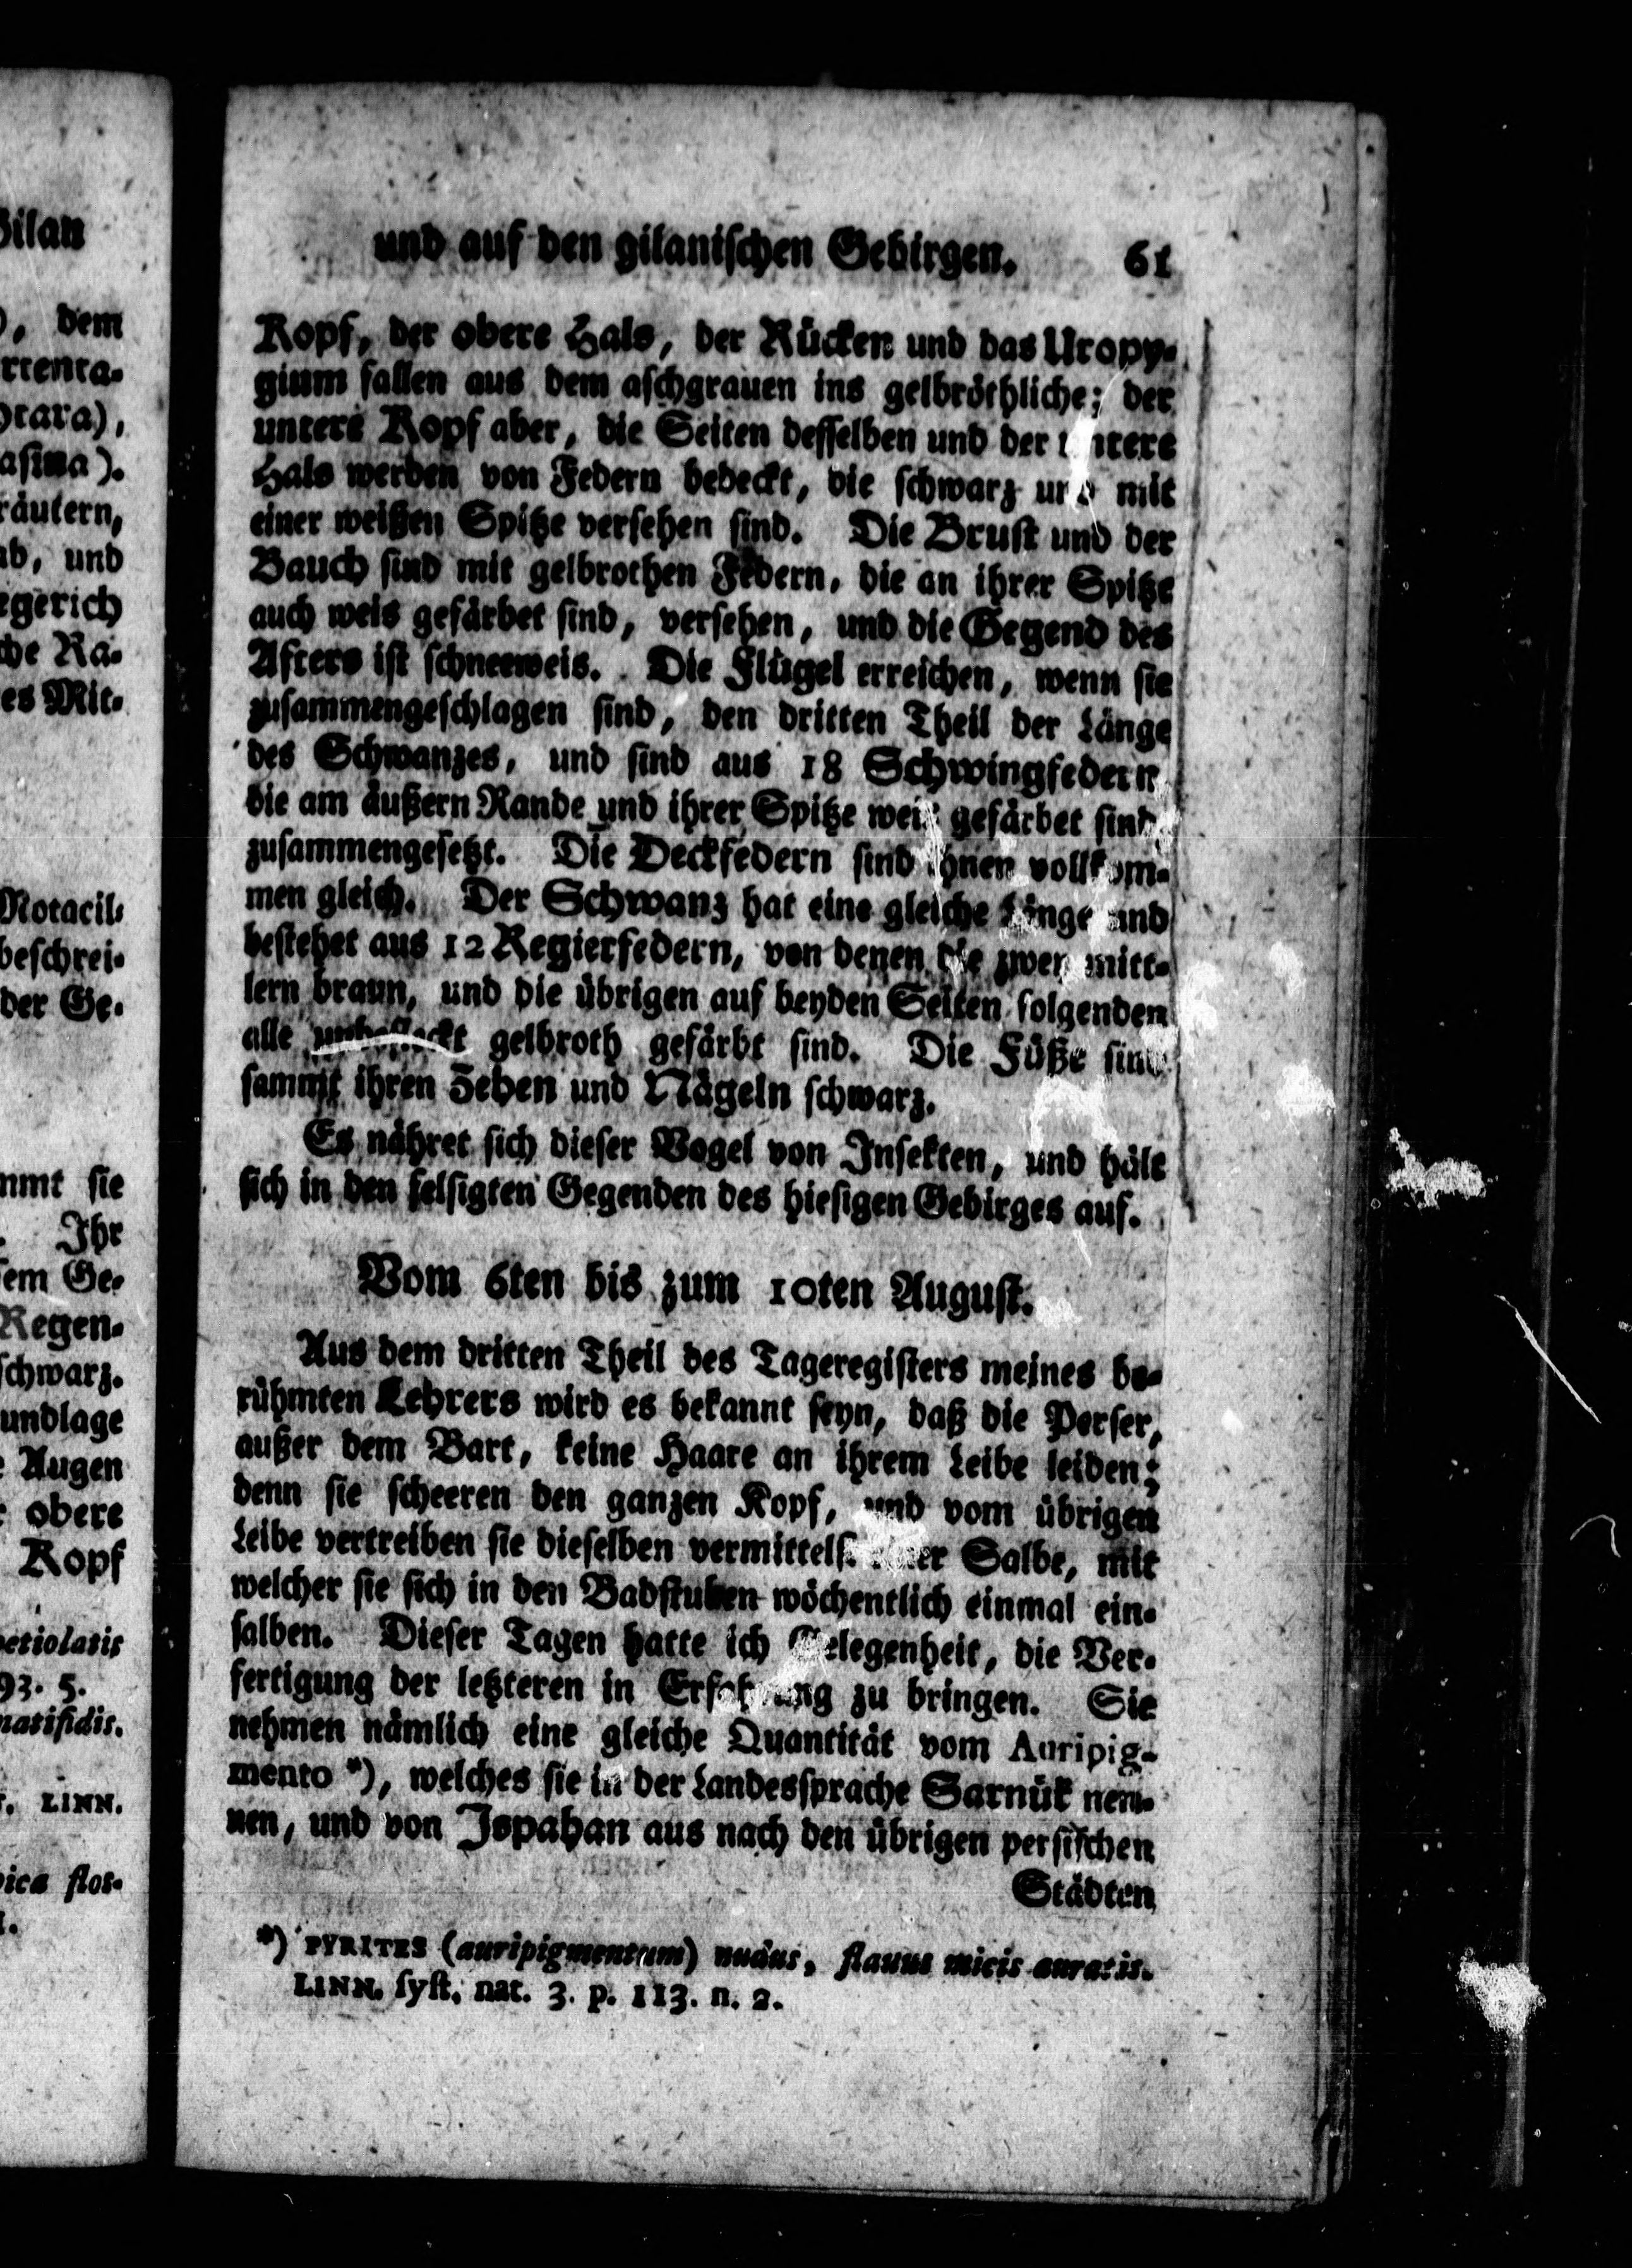 Gilan
), dem
rrenta-
orara),
asina).
räutern,
ab, und
egerich
che Ra-
es Mit-
Motacil-
beschrei-
der Ge-
mmt sie
. Ihr
sem Ge-
Regen-
schwarz.
undlage
e Augen
r obere
Kopf
petiolatis
93. 5.
natifidis.
LINN.
pica flos-
und auf den gilanischen Gebirgen. 61
Kopf, der obere Hals, der Rücken und das Uropy-
gium fallen aus dem aschgrauen ins gelbröthliche; der
untere Kopf aber, die Seiten desselben und der untere
Hals werden von Federn bedeckt, die schwarz und mit
einer weißen Spitze versehen sind. Die Brust und der
Bauch sind mit gelbrothen Federn, die an ihrer Spitze
auch weis gefärbet sind, versehen, und die Gegend des
Afters ist schneeweis. Die Flügel erreichen, wenn sie
zusammengeschlagen sind, den dritten Theil der Länge
des Schwanzes, und sind aus 18 Schwingfedern,
die am äußern Rande und ihrer Spitze weis gefärbet sind,
zusammengesetzt. Die Deckfedern sind ihnen vollkom-
men gleich. Der Schwanz hat eine gleiche Länge und
bestehet aus 12 Regierfedern, von denen die zwey mitt-
lern braun, und die übrigen auf beyden Seiten folgenden
alle unbefleckt gelbroth gefärbt sind. Die Füße sind
sammt ihren Zehen und Nägeln schwarz.
Es nähret sich dieser Vogel von Insekten, und hält
sich in den felsigten Gegenden des hiesigen Gebirges auf.
Vom 6ten bis zum 10ten August.
Aus dem dritten Theil des Tageregisters meines be-
rühmten Lehrers wird es bekannt seyn, daß die Perser,
außer dem Bart, keine Haare an ihrem Leibe leiden;
denn sie scheeren den ganzen Kopf, und vom übrigen
Leibe vertreiben sie dieselben vermittelst einer Salbe, mit
welcher sie sich in den Badstuben wöchentlich einmal ein-
salben. Dieser Tagen hatte ich Gelegenheit, die Ver-
fertigung der letzteren in Erfahrung zu bringen. Sie
nehmen nämlich eine gleiche Quantität vom Auripig-
mento *), welches sie in der Landessprache Sarnük nen-
nen, und von Ispahan aus nach den übrigen persischen
Städten
*) PYRITES (auripigmentum) nudus, flavus micis auratis.
LINN. syst. nat. 3. p. 113. n. 2.